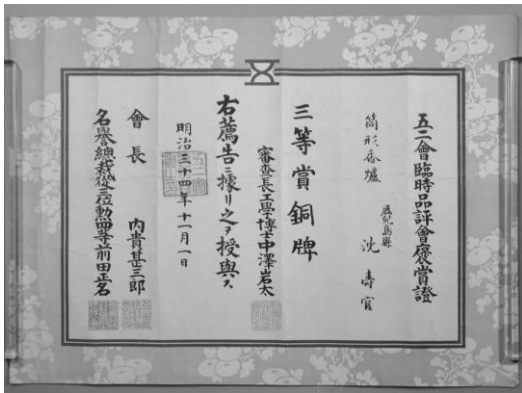 五二會臨時品評會褒賞證
筒形香爐
鹿児島縣
沈壽官
三等賞銅牌
審査長工學博士中澤岩太
右薦告ニ據リ之ヲ授與ス
明治三十四年十一月一日
會長 内貴甚三郎
名譽總裁從三位勲四等前田正名